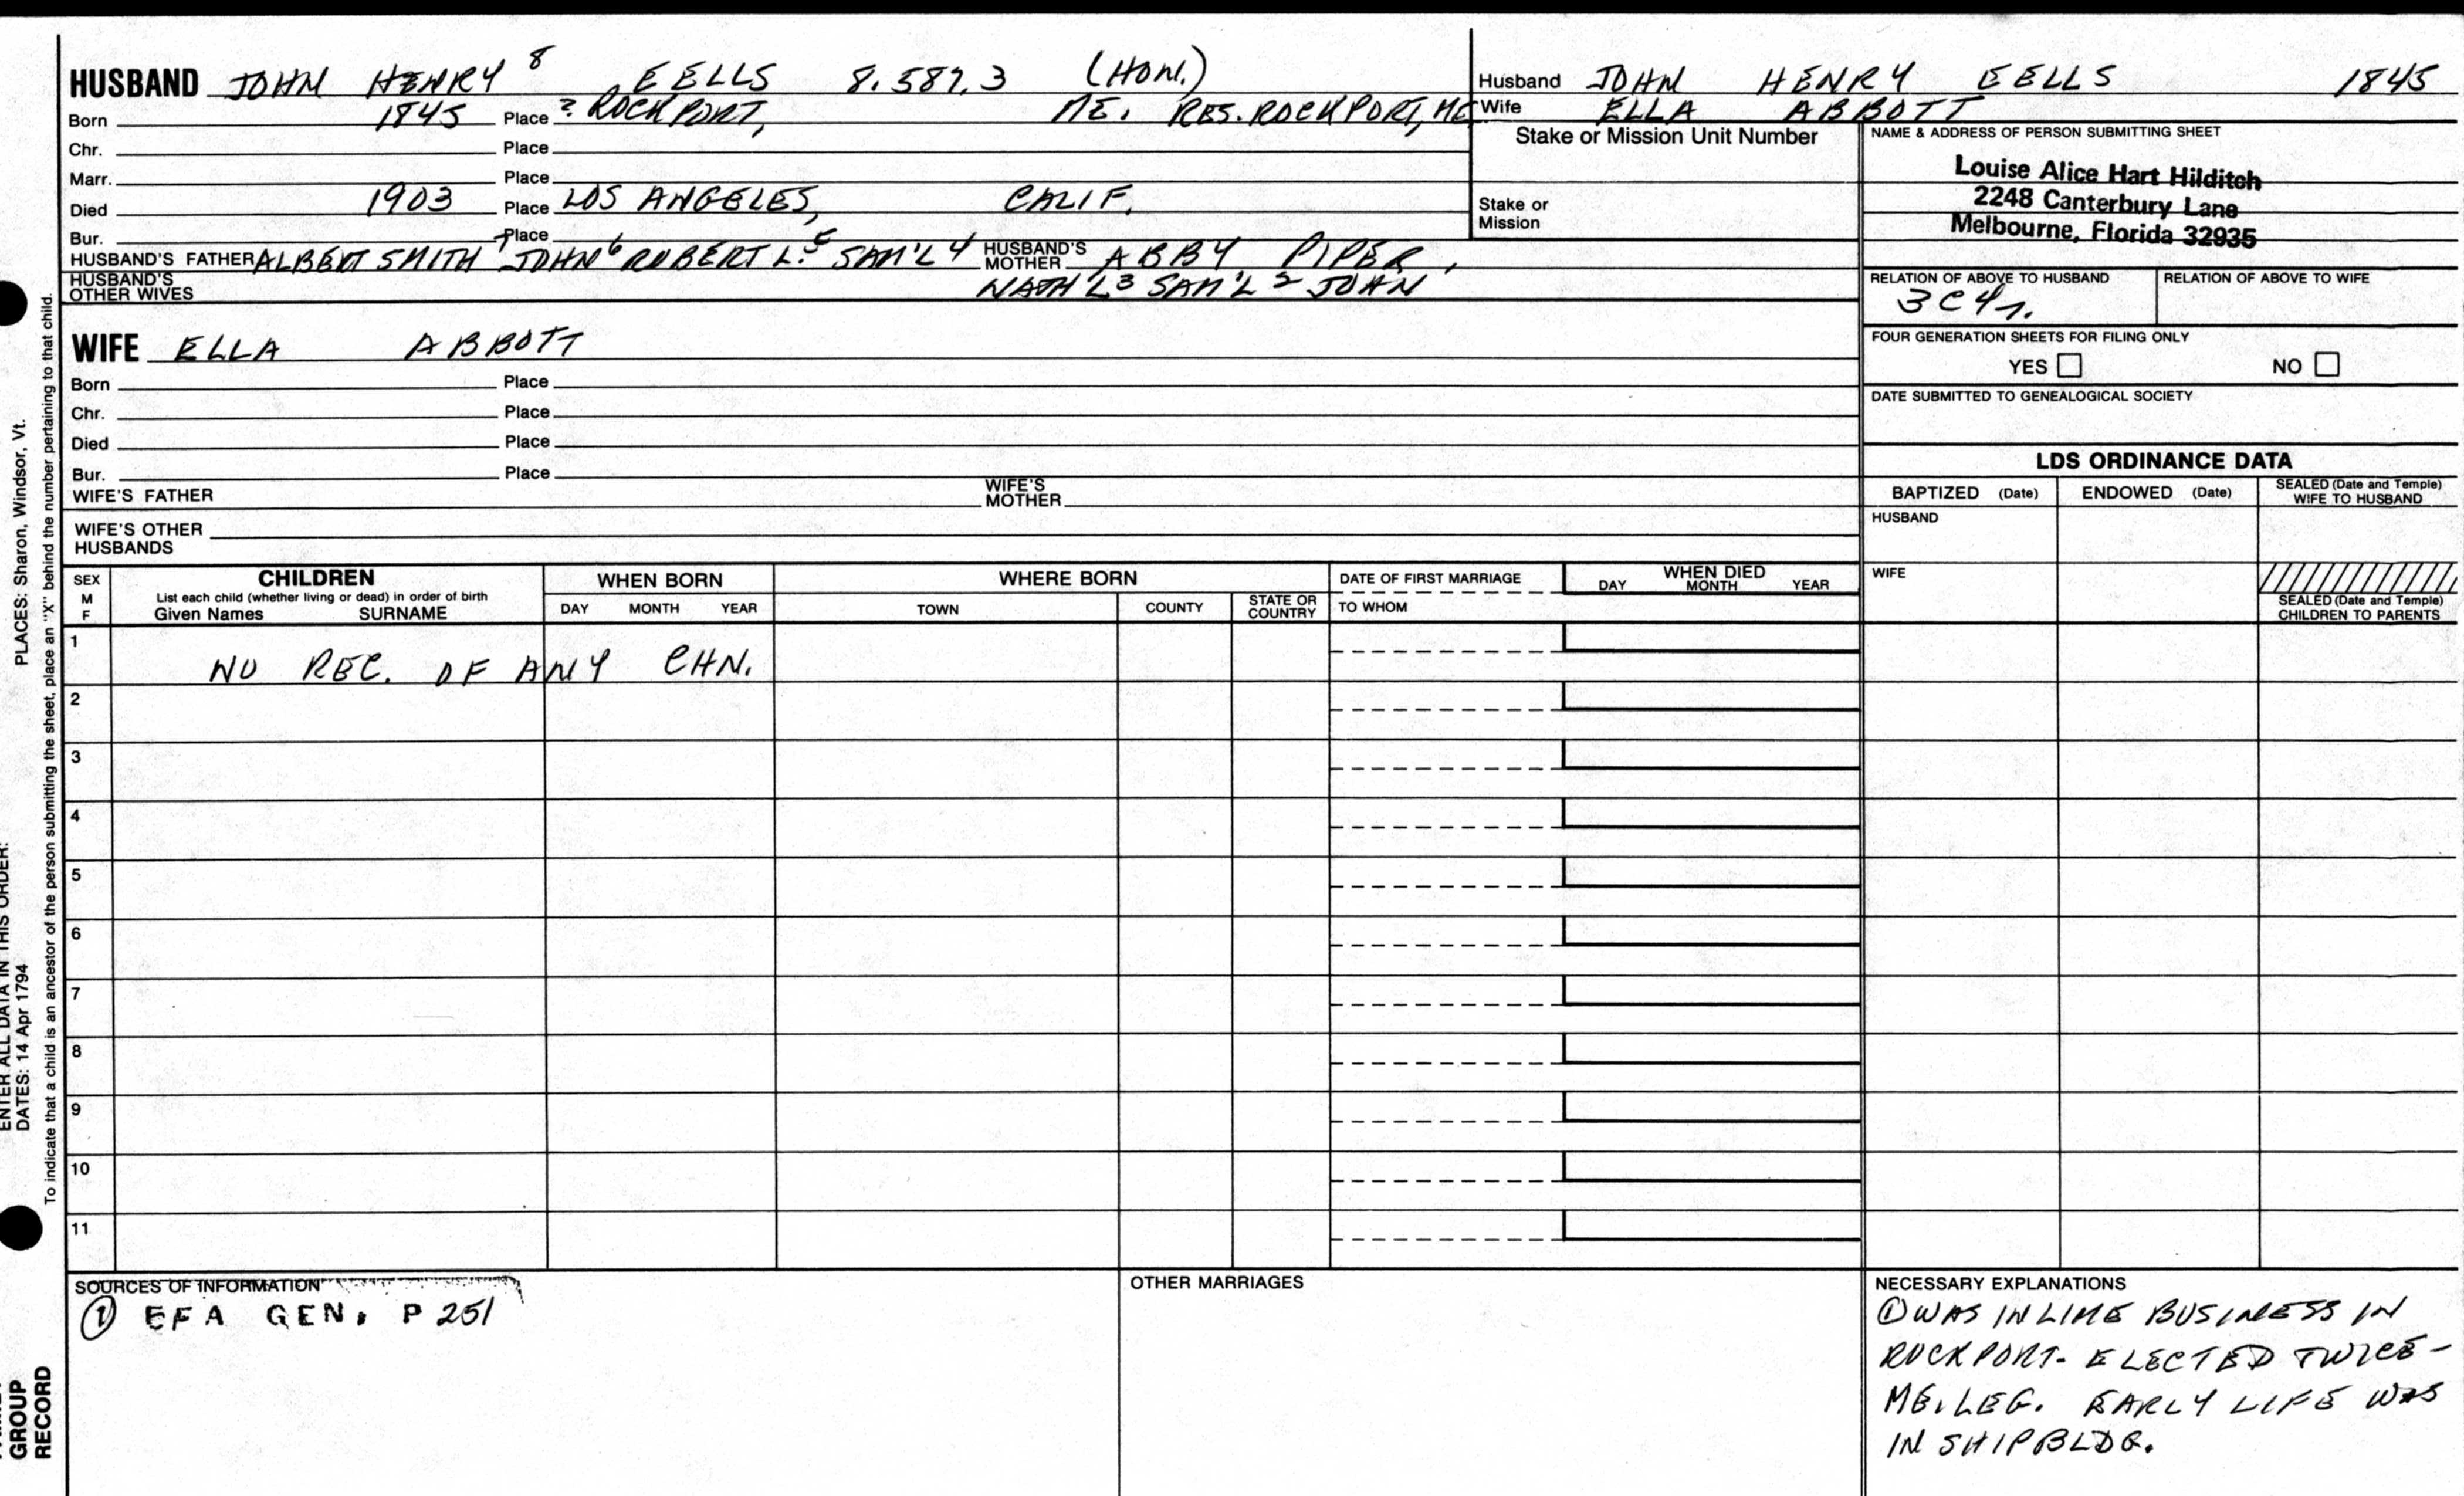 HUSBAND JOHN HENRY 8 EELLS 8.587.3 (HON.)
Born 1845 Place ? ROCKPORT, ME. RES. ROCKPORT, ME
Chr. Place
Marr. Place
Died 1903 Place LOS ANGELES, CALIF.
Bur. Place
HUSBAND'S FATHER ALBERT SMITH 7 JOHN 6 ROBERT L. 5 SAM'L 4 HUSBAND'S MOTHER ABBY PIPER,
HUSBAND'S OTHER WIVES NATH'L 3 SAM'L 2 JOHN
Husband JOHN HENRY EELLS 1845
Wife ELLA ABBOTT
Stake or Mission Unit Number
Stake or
Mission
NAME & ADDRESS OF PERSON SUBMITTING SHEET
Louise Alice Hart Hilditch
2248 Canterbury Lane
Melbourne, Florida 32935
RELATION OF ABOVE TO HUSBAND RELATION OF ABOVE TO WIFE
3C4r.
FOUR GENERATION SHEETS FOR FILING ONLY
YES NO
DATE SUBMITTED TO GENEALOGICAL SOCIETY
WIFE ELLA ABBOTT
Born Place
Chr. Place
Died Place
Bur. Place
WIFE'S FATHER WIFE'S MOTHER
WIFE'S OTHER
HUSBANDS
LDS ORDINANCE DATA
BAPTIZED (Date) ENDOWED (Date) SEALED (Date and Temple) WIFE TO HUSBAND
HUSBAND
WIFE
SEALED (Date and Temple)
CHILDREN TO PARENTS
SEX M F
CHILDREN
List each child (whether living or dead) in order of birth
Given Names SURNAME
WHEN BORN
DAY MONTH YEAR
WHERE BORN
TOWN COUNTY STATE OR COUNTRY
DATE OF FIRST MARRIAGE
TO WHOM
WHEN DIED
DAY MONTH YEAR
1 NO REC. OF ANY CHN.
2
3
4
5
6
7
8
9
10
11
SOURCES OF INFORMATION
① EFA GEN. P 251
OTHER MARRIAGES
NECESSARY EXPLANATIONS
① WAS IN LIME BUSINESS IN
ROCKPORT- ELECTED TWICE-
ME. LEG. EARLY LIFE WAS
IN SHIPBLDG.
To indicate that a child is an ancestor of the person submitting the sheet, place an "X" behind the number pertaining to that child.
PLACES: Sharon, Windsor, Vt.
ENTER ALL DATA IN THIS ORDER:
DATES: 14 Apr 1794
GROUP
RECORD